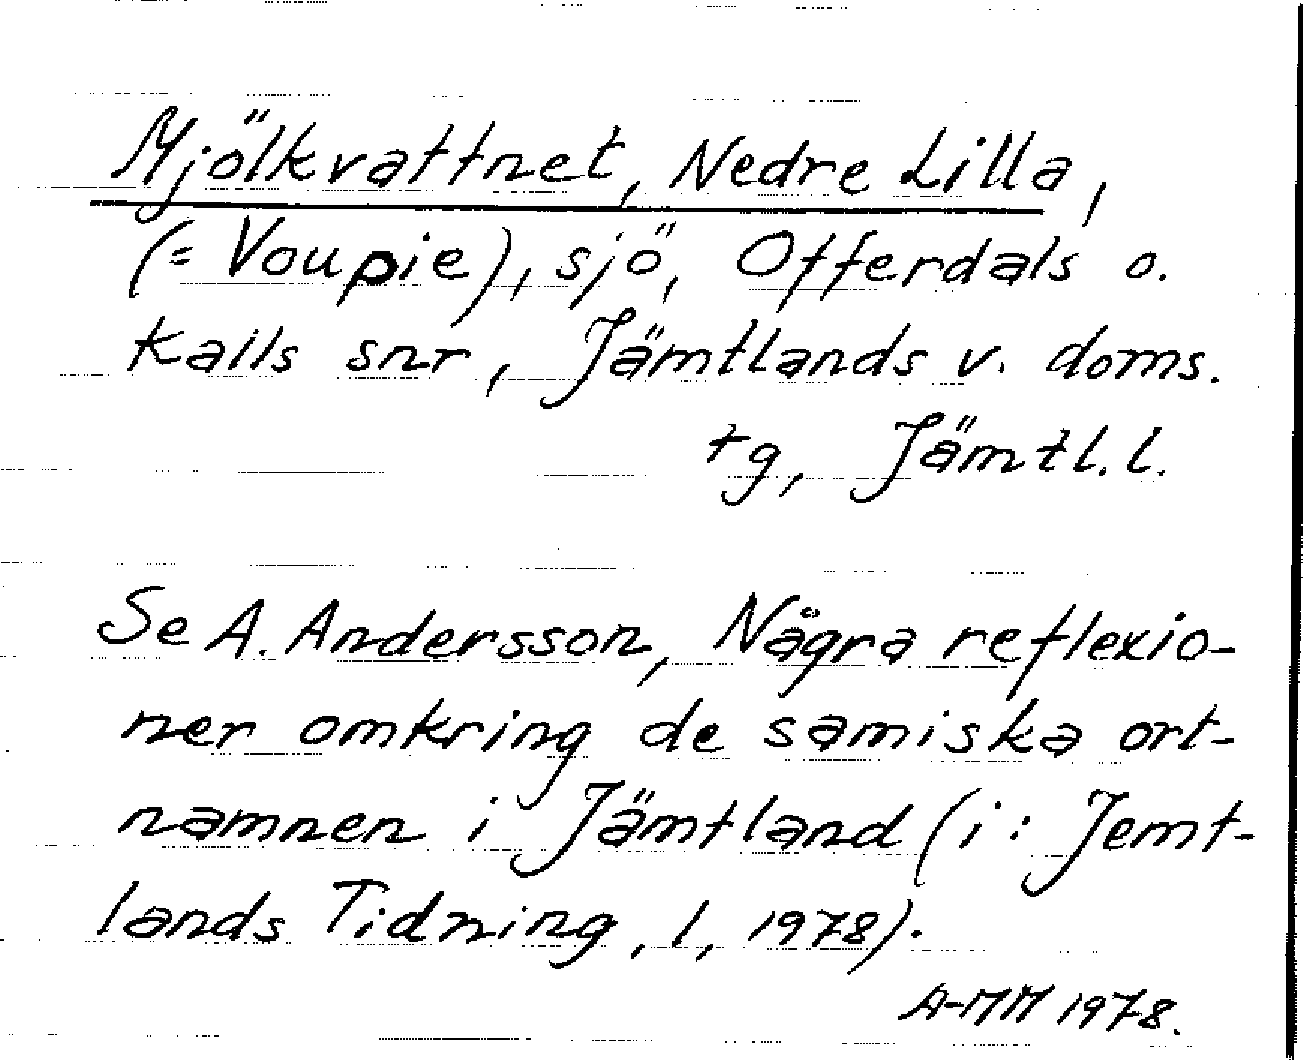 Mjölkvattnet, Nedre Lilla,
(= Voupie), sjö, Offerdals o.
Kalls snr, Jämtlands v. doms.
tg, Jämtl. l.
Se A. Andersson, Några reflexio-
ner omkring de samiska ort-
namnen i Jämtland (i: Jemt-
lands Tidning, 1, 1978).
A-MM 1978.